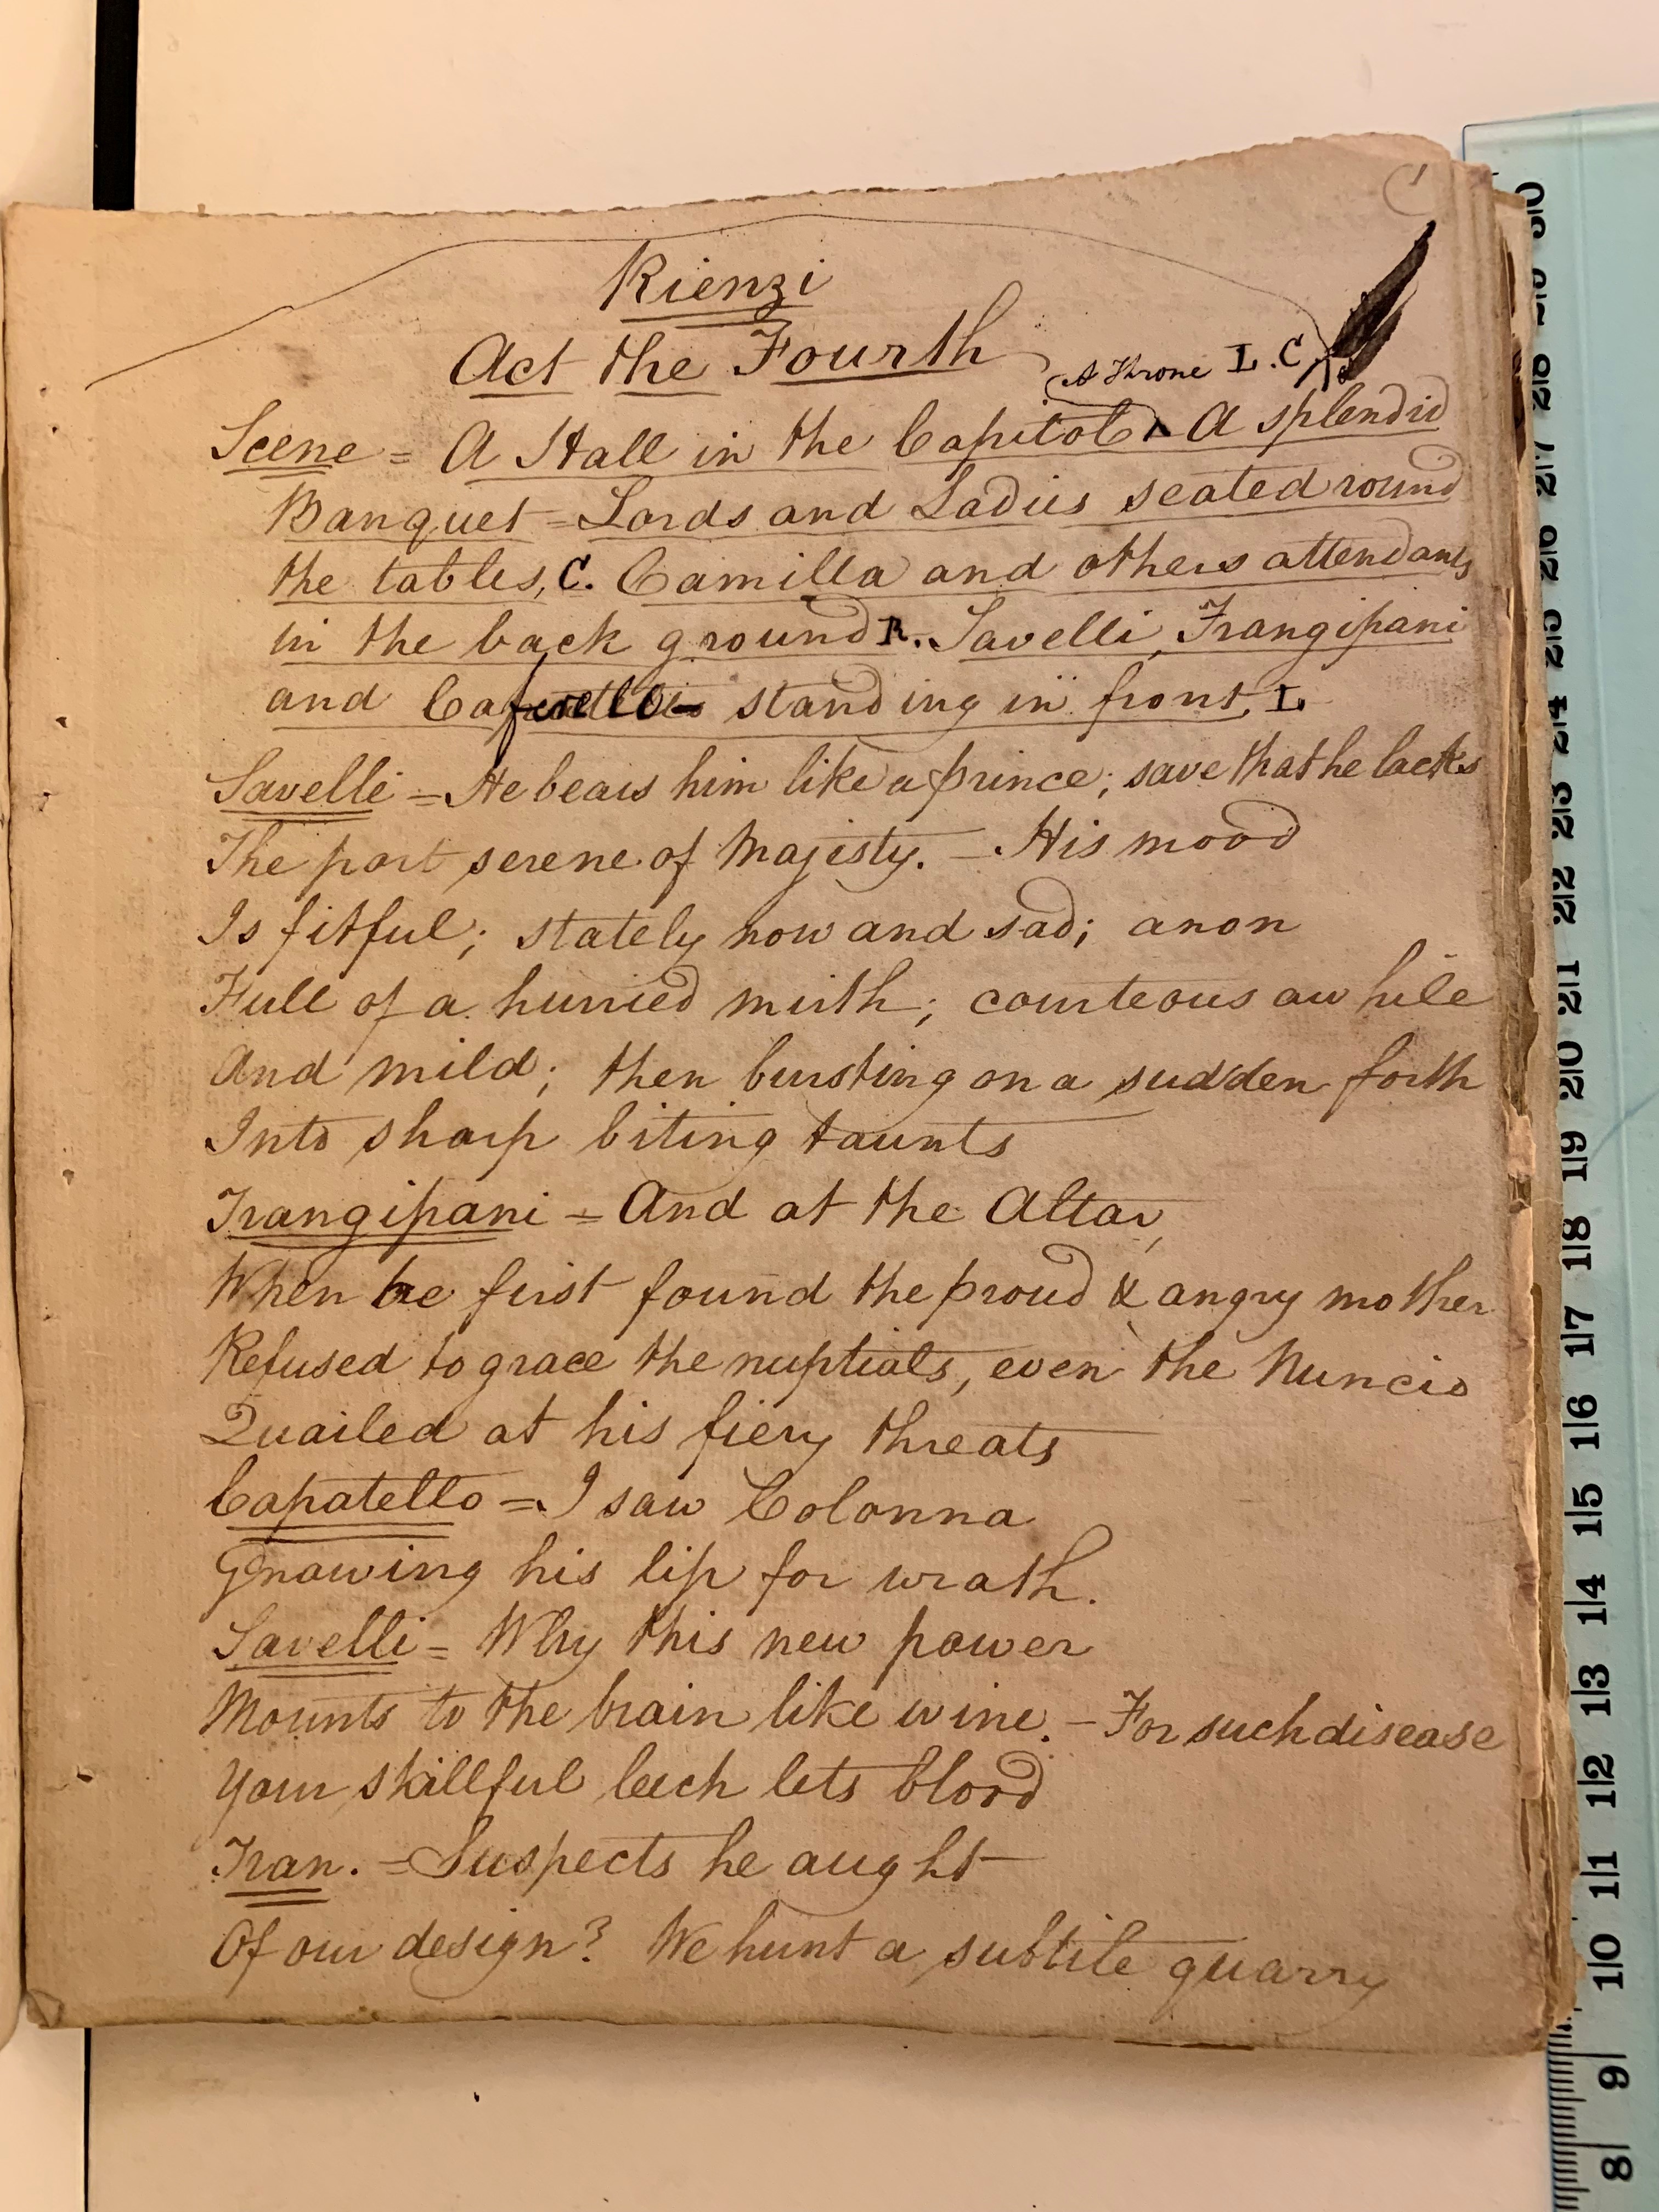 Rienzi
Act the Fourth
A Throne L. C.
Scene = A Hall in the Capitol. A splendid
Banquet = Lords and Ladies seated round
the tables, C. Camilla and others attendants
in the back ground R. Savelli, Frangipani
and standing in front, L.
Savelli = He bears him like a prince; save that he lacks
The port serene of Majesty. — His mood
Is fitful; stately now and sad; anon
Full of a hurried mirth; courteous awhile
And mild; then bursting on a sudden forth
Into sharp biting taunts
Frangipani = And at the Altar,
When he first found the proud & angry mother
Refused to grace the nuptials, even the Nuncio
Quailed at his fiery threats
Capatello = I saw Colonna
Gnawing his lip for wrath.
Savelli = Why this new power
Mounts to the brain like wine. — For such disease
Your skillful leech lets blood
Fran. = Suspects he aught
Of our design? We hunt a subtile quarry
30
29
28
27
26
25
24
23
22
21
20
19
18
17
16
15
14
13
12
11
10
9
8